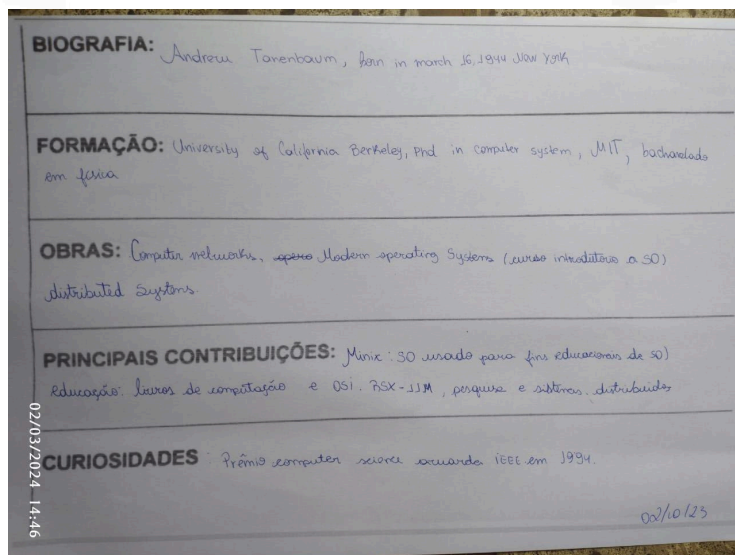 BIOGRAFIA: Andrew Tanenbaum, born in march 16, 1944 New York
FORMAÇÃO: University of California Berkeley, Phd in computer system, MIT, bacharelado
em física
OBRAS: Computer networks, Modern operating Systems (curso introdutório a SO)
distributed Systems.
PRINCIPAIS CONTRIBUIÇÕES: Minix: SO usado para fins educacionais de SO)
Educação: livros de computação e OSi. RSX-11M, pesquisa e sistemas distribuidos
CURIOSIDADES: Prêmio computer science awards iEEE em 1994.
02/10/23
02/03/2024 14:46